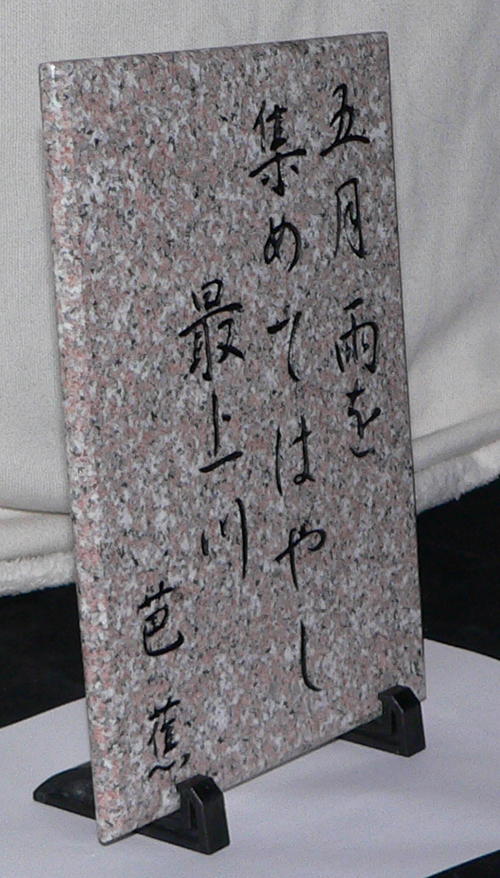 五月雨を
集めてはやし
最上川
芭蕉